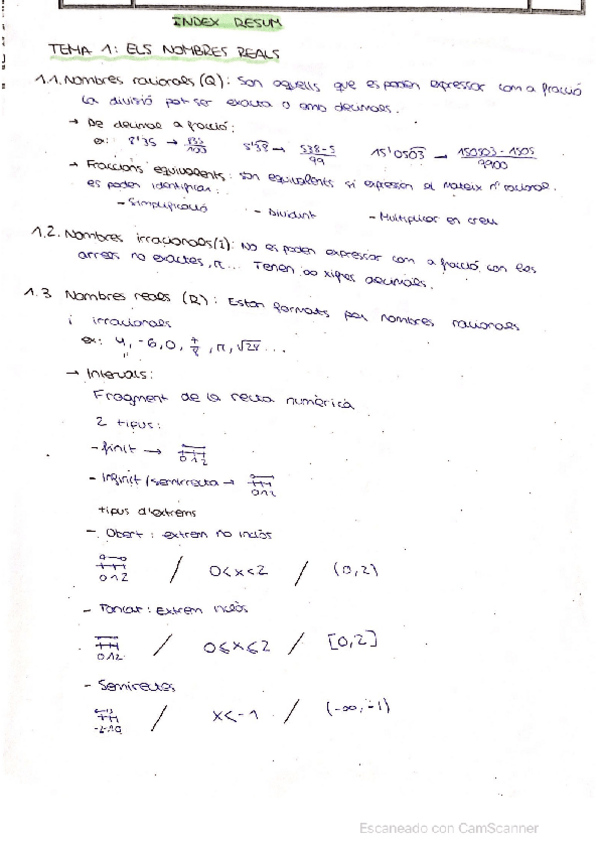 INDEX RESUM
TEMA 1: ELS NOMBRES REALS
1.1. Nombres racionals (Q): Son aquells que es poden expressar com a fracció
La divisió pot ser exacta o amb decimals.
→ De decimal a fracció:
ex: 8'35 → 5'38 → 538-5/99 15'0503 → 150503-1505/9900
→ Fraccions equivalents: són equivalents si expressen el mateix nº racional.
es poden identificar:
- Simplificació - Dividint - Multiplicar en creu
1.2. Nombres irracionals (I): No es poden expressar com a fracció, con les
arrels no exactes, π... Tenen ∞ xifres decimals.
1.3 Nombres reals (R): Estan formats per nombres racionals
i irracionals
ex: 4, -6, 0, 7/2, π, √24 ...
→ Intervals:
Fragment de la recta numèrica
2 tipus:
- finit → 0 1 2
- Infinit/semirrecta → 0 1 2
tipus d'extrems
- Obert: extrem no inclòs
0 1 2 / 0<x<2 / (0,2)
- Tancat: Extrem inclòs
0 1 2 / 0≤x≤2 / [0,2]
- Semirectes
-2 -1 0 / x<-1 / (-∞,-1)
Escaneado con CamScanner